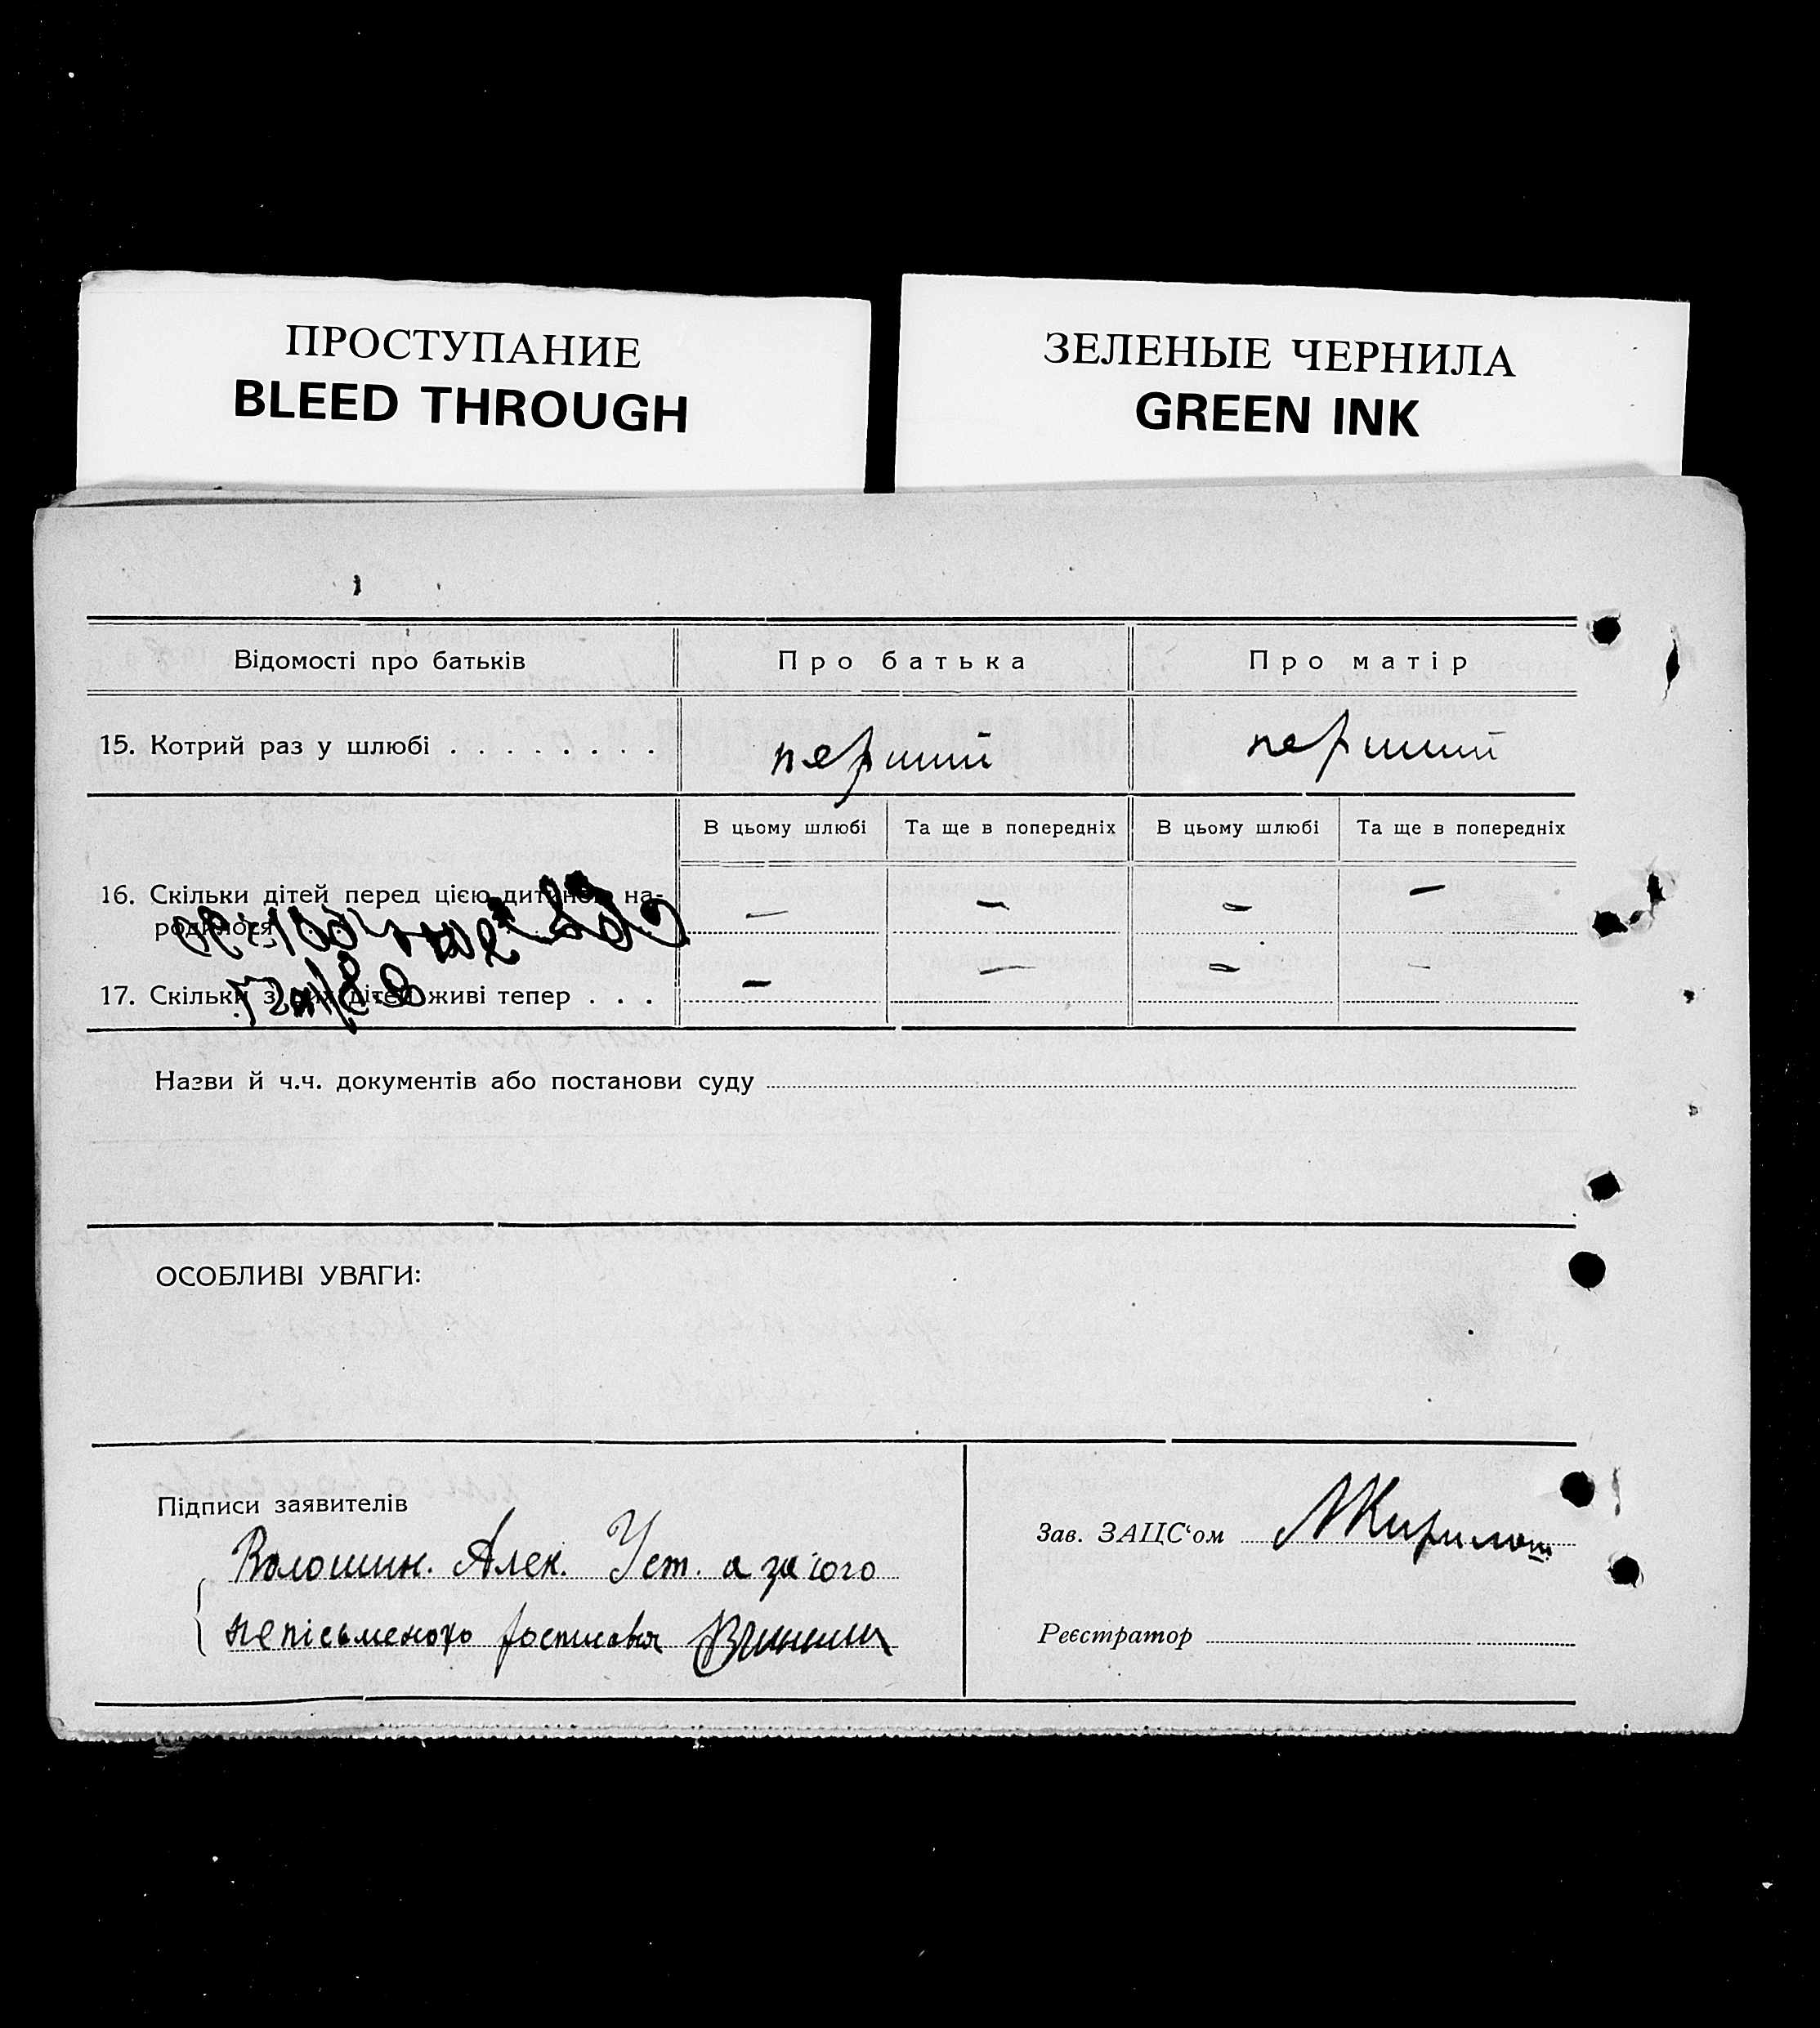 ПРОСТУПАНИЕ
BLEED THROUGH
ЗЕЛЕНЫЕ ЧЕРНИЛА
GREEN INK
Відомості про батьків Про батька Про матір
15. Котрий раз у шлюбі . . . . . . . . перший перший
В цьому шлюбі Та ще в попередніх В цьому шлюбі Та ще в попередніх
16. Скільки дітей перед цією дитиною на- — — — —
родилося
17. Скільки з них дітей живі тепер . . . — — — —
Назви й ч.ч. документів або постанови суду
ОСОБЛИВІ УВАГИ:
Підписи заявителів
Волошин. Алек. Уст. а за його
непісьменого росписався
Зав. ЗАЦС‘ом
Реєстратор